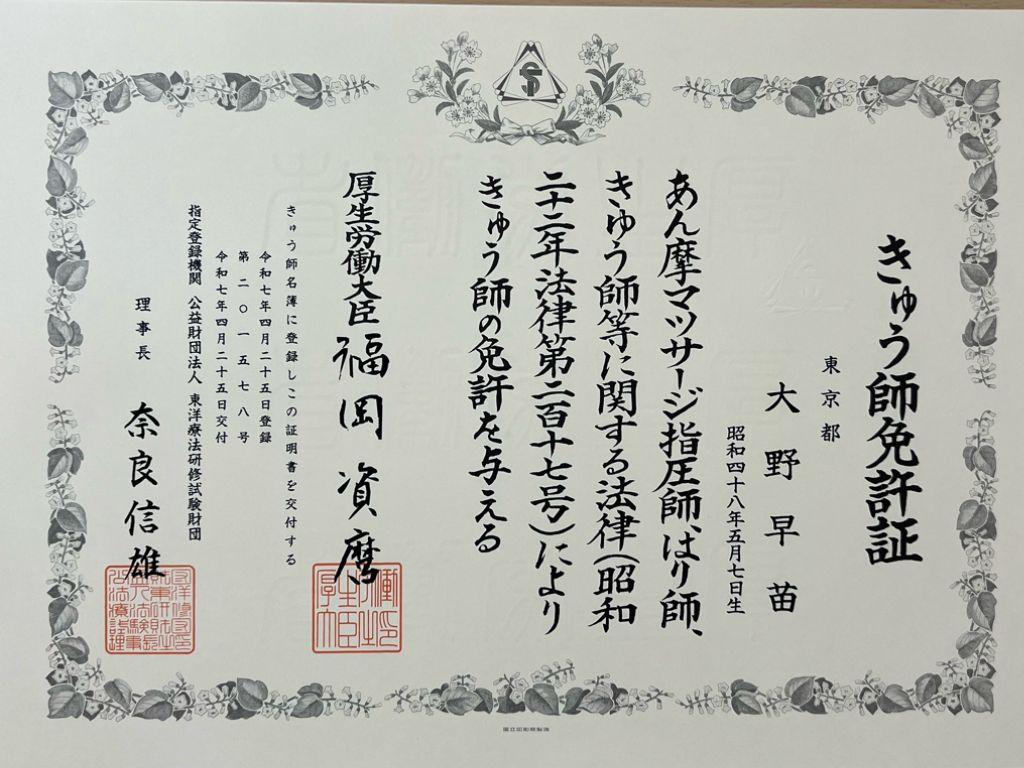 きゅう師免許証
東京都
大野早苗
昭和四十八年五月七日生
あん摩マツサージ指圧師、はり師、
きゆう師等に関する法律(昭和
二十二年法律第二百十七号)により
きゅう師の免許を与える
厚生労働大臣 福岡資麿
きゅう師名簿に登録しこの証明書を交付する
令和七年四月二十五日登録
第二〇一五七八号
令和七年四月二十五日交付
指定登録機関 公益財団法人 東洋療法研修試験財団
理事長 奈良信雄
国立印刷局製造